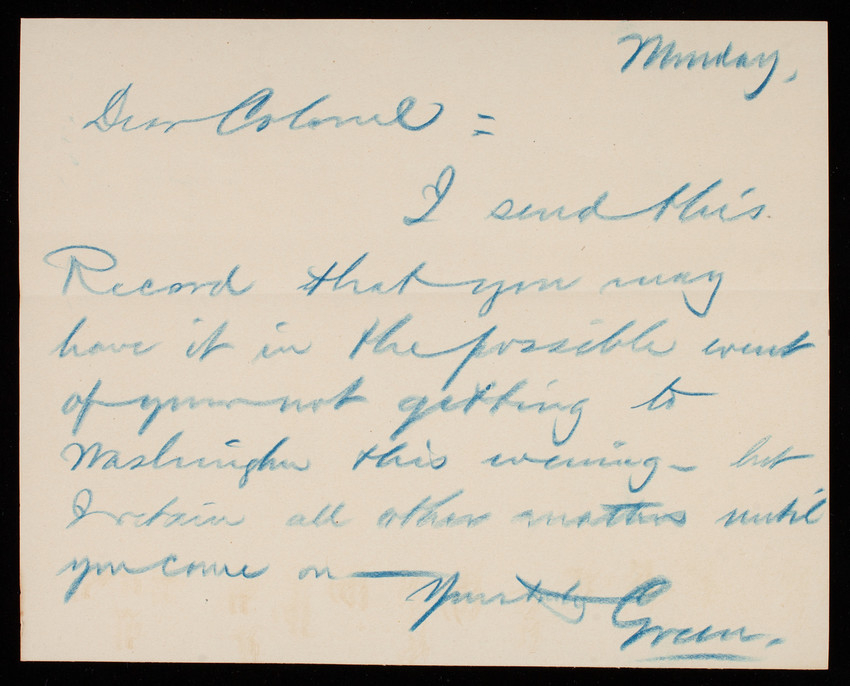 Monday.
Dear Colonel =
I send this
Record that you may
have it in the possible event
of your not getting to
Washington this evening - but
I retain all other matters until
you come on —
Yours truly Green.